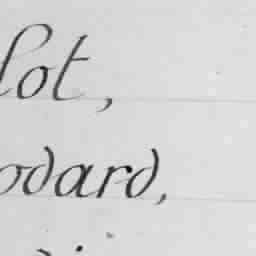 lot,
odard,